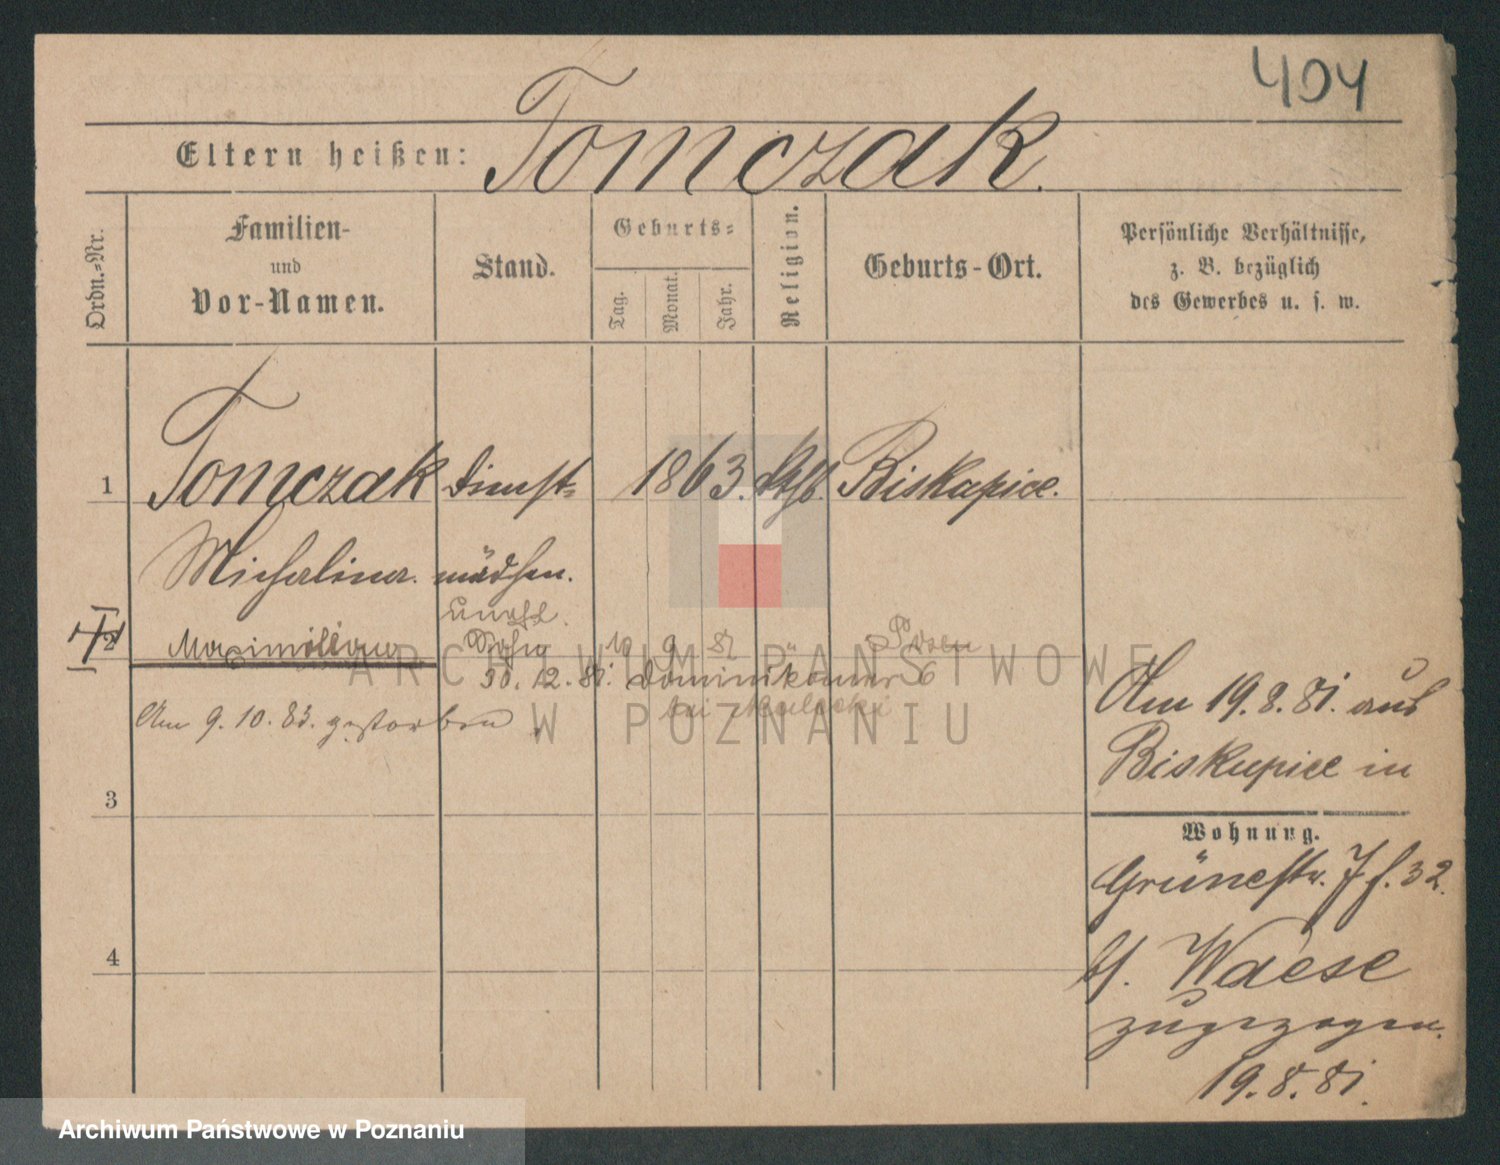 404
Eltern heißen: Tomczak.
Ordn.-Nr.
Familien-
und
Vor-Namen.
Stand.
Geburts-
Tag.
Monat.
Jahr.
Religion.
Geburts-Ort.
Persönliche Verhältnisse,
z. B. bezüglich
des Gewerbes u. s. w.
1 Tomczak Dienst- 1863. kath. Biskupice.
Michalina. mädchen.
unehl.
2 Maximiliana 10 9 Posen
30. 12. 81. Dominikaner 6
bei
Am 9. 10. 83. gestorben
3
4
Am 19.8.81. aus
Biskupice in
Wohnung.
Grünestr. 32.
bei Waese
zugezogen.
19.8.81.
ARCHIWUM PAŃSTWOWE
W POZNANIU
Archiwum Państwowe w Poznaniu